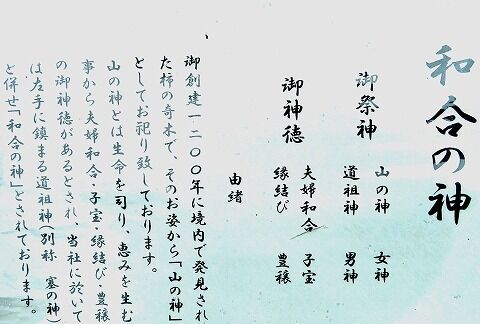 和合の神
御祭神
山の神 女神
道祖神 男神
御神徳
夫婦和合 子宝
縁結び 豊穣
由緒
御創建一二〇〇年に境内で発見され
た柿の奇木で、そのお姿から「山の神」
としてお祀り致しております。
山の神とは生命を司り、恵みを生む
事から夫婦和合・子宝・縁結び・豊穣
の御神徳があるとされ、当社に於いて
は左手に鎮まる道祖神(別称 塞の神)
と併せ「和合の神」とされております。